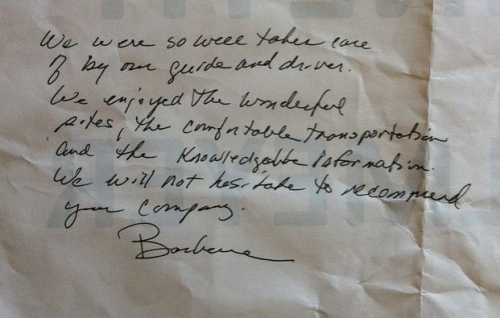 We were so well taken care
of by our guide and driver.
We enjoyed the wonderful
sites, the comfortable transportation
and the knowledgable information.
We will not hesitate to recommend
your company.
Barbara